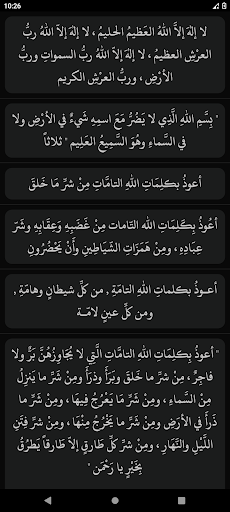 10:26
لا إلهَ إلاَّ اللهُ العَظيمُ الحليمُ ، لا إلهَ إلاَ اللهُ ربُّ
العرْشِ العظيمُ ، لا إلهَ إلاَ اللهُ ربُّ السمواتِ وربُّ
الأرْضِ ، وربُّ العرْشِ الكريم
" بِسْمِ اللهِ الَّذِي لا يَضُرُّ مَعَ اسمِهِ شَيءٌ في الأرْضِ ولا
في السَّماءِ وهُوَ السَّمِيعُ العَلِيم " ثلاثاً
أعوذُ بكلِمَاتِ اللهِ التامَّاتِ مِنْ شرِّ ما خَلقَ
أعُوذُ بكَلِمَاتِ الله التَّامات مِنْ غَضَبِهِ وَعِقَابِهِ وشَرِّ
عِبَادِهِ ، ومِنْ هَمَزَاتِ الشَّيَاطِينِ وأنْ يَحْضُرُونِ
أعــوذُ بكلماتِ اللهِ التامَةِ , من كلِّ شيطانٍ وهامَةِ ,
ومن كلِّ عينٍ لامَـة
" أعوذُ بكلِمَاتِ اللهِ التامَّاتِ الَّتي لا يُجَاوِزُهُنَّ بَرٌّ ولا
فاجِرٌ , مِنْ شرِّ ما خَلقَ ، وبَرَأَ وذَرَأَ ومِنْ شَرِّ ما يَنزِلُ
مِنْ السَّماءِ ، ومِنْ شَرِّ مَا يَعْرُجُ فِيهَا ، ومِنْ شرِّ ما
ذَرَأَ في الأرَضِ ومِنْ شَرِّ مَا يَخْرُجُ مِنْهَا ، ومِنْ شَرِّ فِتَنِ
اللَّيْلِ والنَّهَارِ ، ومِنْ شرِّ كلِّ طَارِقٍ إلاّ طَارقاً يَطرُقُ
بِخَيْرٍ يا رَحْمَن "